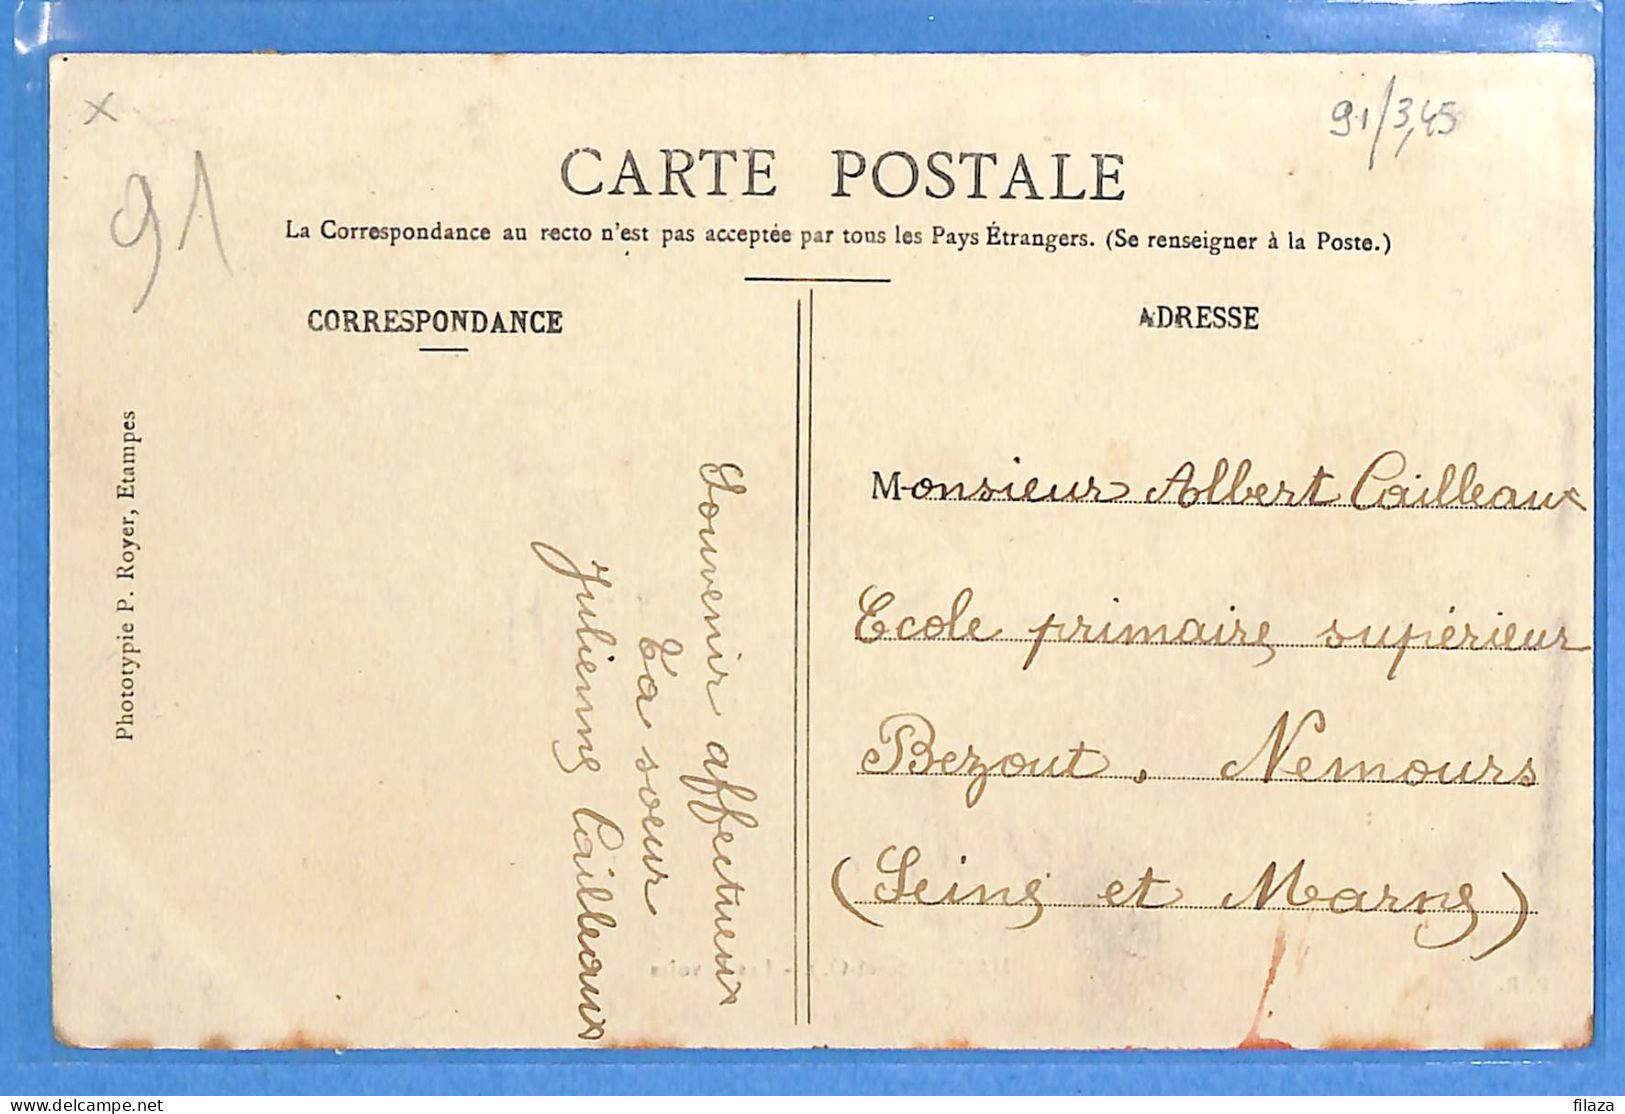 x
91
91/3,45
CARTE POSTALE
La Correspondance au recto n'est pas acceptée par tous les Pays Étrangers. (Se renseigner à la Poste.)
CORRESPONDANCE
Phototypie P. Royer, Etampes
Souvenir affectueux
Ta sœur
Julienne Cailleaux
ADRESSE
Monsieur Albert Cailleaux
Ecole primaire supérieur
Bezout. Nemours
(Seine et Marne)
delcampe.net
filaza